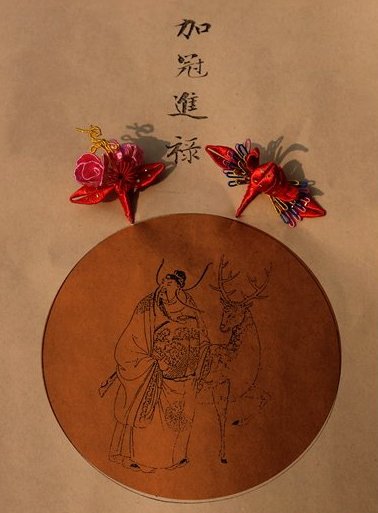 加冠進祿